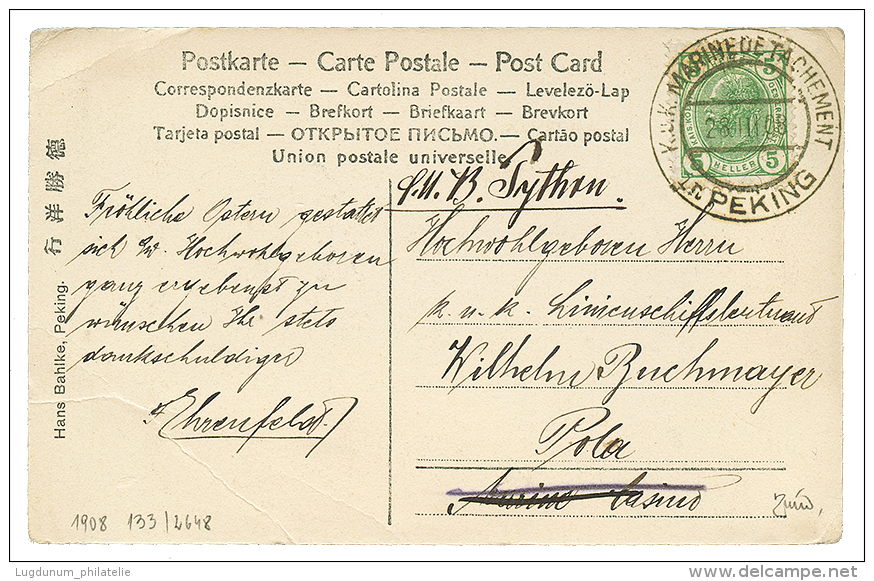 Postkarte – Carte Postale – Post Card
Correspondenzkarte – Cartolina Postale – Levelező-Lap
Dopisnice – Brefkort – Briefkaart – Brevkort
Tarjeta postal – ОТКРЫТОЕ ПИСЬМО. – Cartão postal
Union postale universelle
K.U.K. MARINEDETACHEMENT
PEKING
5 5
5 HELLER 5
德勝洋行
Hans Bahlke, Peking.
Fröhliche Ostern gestattet
sich Ew. Hochwohlgeboren
ganz ergebenst zu
wünschen Ihr stets
dankschuldiger
Ehrenfeld.
S.M.B. Python.
Hochwohlgeboren Herrn
k. u. k. Linienschiffsleutnand
Wilhelm Buchmayer
Pola
Marine Casino
1908 133/2648
Lugdunum_philatelie
www.delcampe.net